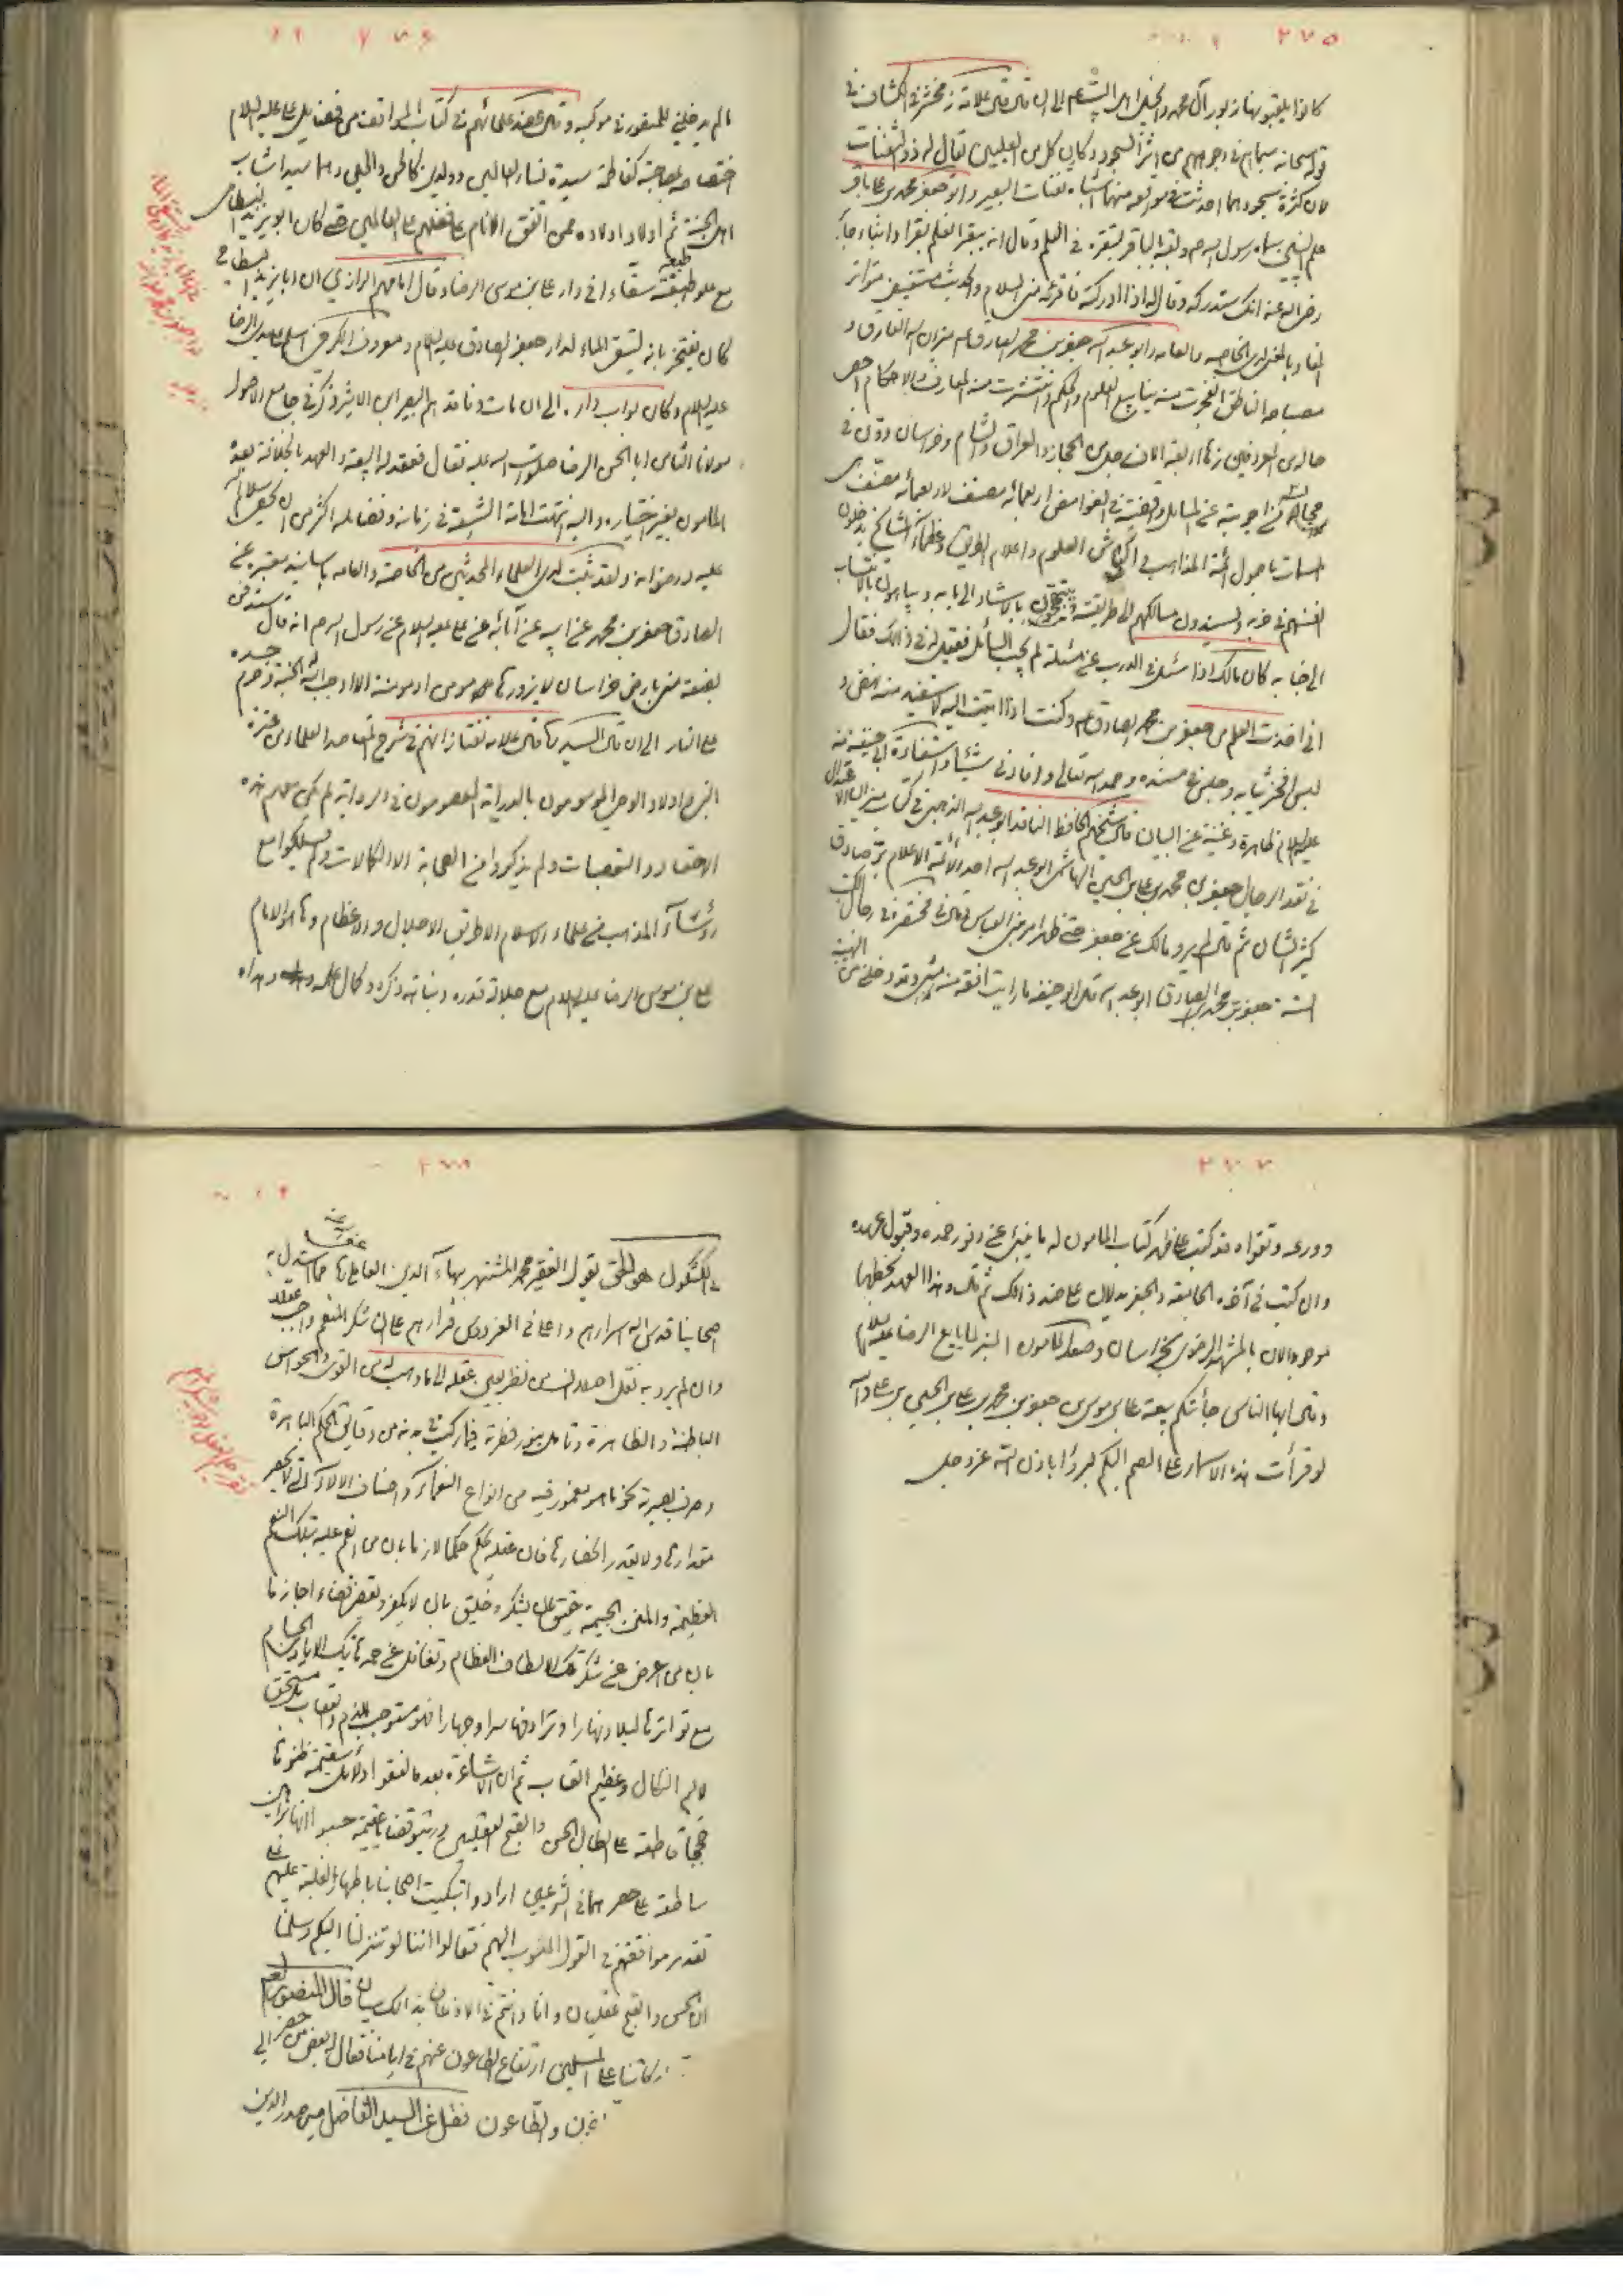 ٢٧٥
كانوا يلقبونها زبور آل محمد وانجيل اهل البيت عليهم السلام الى ان قال قال علامة زمخشر في الكشاف في
قوله سبحانه سيماهم في وجوههم من اثر السجود وكان كل من العليين يقال له ذو الثفنات
لان كثرة سجودهما احدثت في مواقعه منهما اشباه ثفنات البعير وابو جعفر محمد بن على باقر
علم النبيين سماه رسول الله ص ولقبه الباقر لتبقره في العلم وقال انه يبقر العلم بقرا وانباء جابر
رضى الله عنه انك ستدركه وقال له اذا ادركته فاقرئه منى السلام والحديث مستفيض متواتر
المفاد بالمعنى لدى الخاصه والعامه وابو عبد الله جعفر بن محمد الصادق ع ميزان الله الفارق و
مصباحه الناطق انفجرت منه ينابيع العلوم والحكم وانتشرت منه المعارف والاحكام احصى
رجاله المعروفين زهاء اربعة الاف رجل من الحجاز والعراق والشام وخراسان ودون في
مجالس من اجوبته عن المسائل وقضيته في الغوامض اربعمائه مصنف لاربعمائه مصنف
المسمات باصول ائمة المذاهب من اكياس العلوم واعلام الطريق وعظماء المشايخ يدخلون
انفسهم في حزبه ويسندون مسالكهم الى طريقته ويتبجحون بالاستناد الى بابه ويباهون بالانتساب
الى جنابه كان مالك اذا سئل في الدرس عن مسئلة لم يجب السائل فقيل له في ذلك فقال
انى اخذت العلم من جعفر بن محمد الصادق ع وكنت اذا اتيت اليه لاستفيد منه نهض و
لبس افخر ثيابه وجلس في مسنده وحمد الله تعالى وافادنى شيئا واستفادة ابى حنيفة منه
عليه السلام ظاهرة وغنية عن البيان قال شيخهم الحافظ الناقد ابو عبد الله الذهبى في كتاب ميزان الاعتدال
في نقد الرجال جعفر بن محمد بن على بن الحسين الهاشمى ابو عبد الله احد الائمة الاعلام بر صادق
كبير الشان ثم قال لم يرو مالك عن جعفر حتى ظهر امر بنى العباس وقال في مختصره في رجال الكتب
الستة جعفر بن محمد الصادق ابو عبد الله قال ابو حنيفه ما رايت افقه منه وقد دخلنى من الهيبة
٢٧٦
مالم يدخلنى للمنصور في موكبه وقال عضد علمائهم في كتاب المواقف من فضايل على عليه السلام
اختصاصه بصاحبة كفاطمة سيدة نساء العالمين وولدين كالحسن والحسين وهما سيدا شباب
اهل الجنة ثم اولاد اولاده ممن اتفق الانام على فضلهم على العالمين حتى كان ابو يزيد البسطامى
مع علو طبقته سقاء في دار على بن موسى الرضا وقال امامهم الرازي ان ابا يزيد البسطامى
كان يفتخر بانه ليستقى الماء لدار جعفر الصادق عليه السلام ومعروف الكرخى اسلم على يدى الرضا
عليه السلام وكان بواب داره الى ان مات وناقدهم البصير ابن الاثير ذكر في جامع الاصول
مولانا الثامن ابا الحسن الرضا صلوات الله عليه فقال فعقد له البيعة والعهد بالخلافة بعده
المامون بغير اختياره واليه انتهت امامة الشيعة في زمانه وفضايله اكثر من ان تحصى سلام الله
عليه ورضوانه ولقد ثبت لدى العلماء المحدثين من الخاصة والعامه باسانيد معتبره عن
الصادق جعفر بن محمد عن ابيه عن آبائه عن على عليه السلام عن رسول الله ص انه قال ستدفن
بضعة منى بارض خراسان لا يزورها مومن او مومنة الا اوجب الله له الجنة وحرم جسده
على النار الى ان قال السيد قال علامة تفتازانهم في شرح المقاصد العلماء من عترة
النبى واولاد الوصى الموسومون بالدراية المعصومون في الرواية لم يكن معهم هذه
الاحقاد والتعصبات ولم يذكروا من الصحابة الا الكمالات ولم يسلكوا مع
رؤساء المذاهب من علماء الاسلام الا طريق الاجلال والاعظام وها هو الامام
على بن موسى الرضا عليه السلام مع جلالة قدره ونباهة ذكره وكمال علمه وهداه
٢٧٧
وورعه وتقواه قد كتب على ظهر كتاب المامون له ما ينبئ عن وفور حمده وقبول عهده
وان كتب في آخره الجامعة والجفر يدلان على ضد ذلك ثم قال وهذا العهد بخطهما
موجود الان بالمشهد الرضوى بخراسان وصعد المامون المنبر لما بايع الرضا عليه السلام
وقال ايها الناس جائتكم بيعة على بن موسى بن جعفر بن محمد بن على بن الحسين بن على والله
لو قرأت هذه الاسماء على الصم البكم لبرؤا باذن الله عز وجل
٢٧٨
في الكشكول هو الحق يقول الفقير محمد المشتهر ببهاء الدين العاملى عفى عنه مما استدل به
اصحابنا قدس الله اسرارهم واعلى في الفردوس قرارهم على ان شكر المنعم واجب عقلا
وان لم يرد به نقل اصلا ان من نظر بعين عقله الى ما وهب له من القوى والحواس
الباطنة والظاهرة وتامل بنور فطرته فيما ركب في بدنه من دقايق الحكم الباهرة
وصرف بصيرته نحو ما هو مغمور فيه من انواع النعماء واصناف الالاء التى لا يحصر
مقدارها ولا يقدر انحصارها فان عقله يحكم حكما لازما بان من انعم عليه بتلك النعم
العظيمة والمنن الجسيمة حقيق بان يشكر وخليق بان لا يكفر ويقضى قضاء جازما
بان من اعرض عن شكر تلك الالطاف العظام وتغافل عن حمد هاتيك الايادى الجسام
مع تواترها ليلا ونهارا وترادفها سرا وجهارا فهو مستوجب للذم والعتاب بل مستحق
لاليم النكال وعظيم العقاب ثم ان الاشاعرة بعد ما لفقوا دلائل سقيمة ظنوها
حججا قاطعة على ابطال الحسن والقبح العقليين ورتبوا قضايا عقيمة حسبوا انها براهين
ساطعة على حصرهما في الشرعيين ارادوا تبكيت اصحابنا باظهار الغلبة عليهم على
تقدير موافقتهم في القول المنسوب اليهم فقالوا اننا لو تنزلنا اليكم وسلمنا
ان الحسن والقبح عقليان وانا وانتم في الاذعان بذلك سيان قال المنصور
بركاتنا على المسلمين ارتفاع الطاعون عنهم في ايامنا فقال بعض من حضر
والطاعون نقل عن السيد الفاضل مير صدر الدين